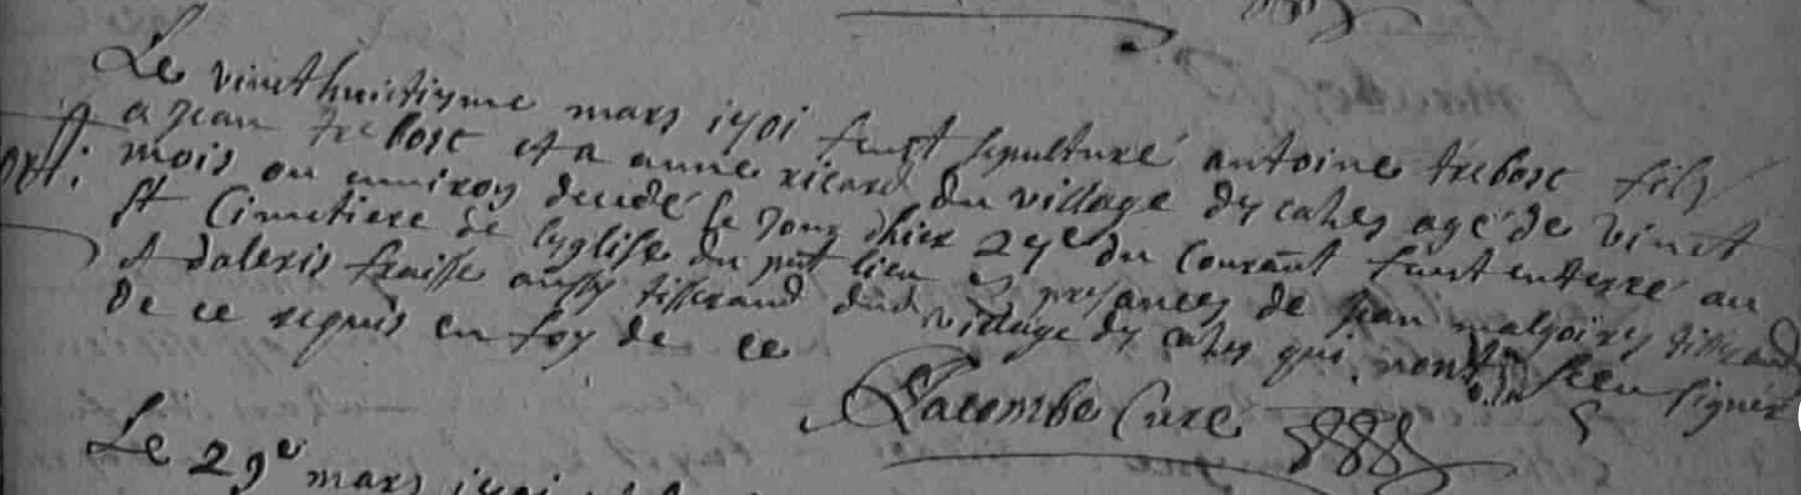 Le vincthuictiyme mars 1701 feust sepulturé antoine trebosc fils
a jean trebosc et a anne ricard du village dy cahes agé de vinct
mois ou enuiron decedé le jour dhier 27e du courant feust enterré au
st Cimetiere de lyglise du pnt lieu es presances de jean malzoires tisserand
et dalexis fraisse aussy tisserand dud village dy cahes qui nont sceu signer
de ce requis en foy de ce
Lacombe Cure
Le 29e mars 1701